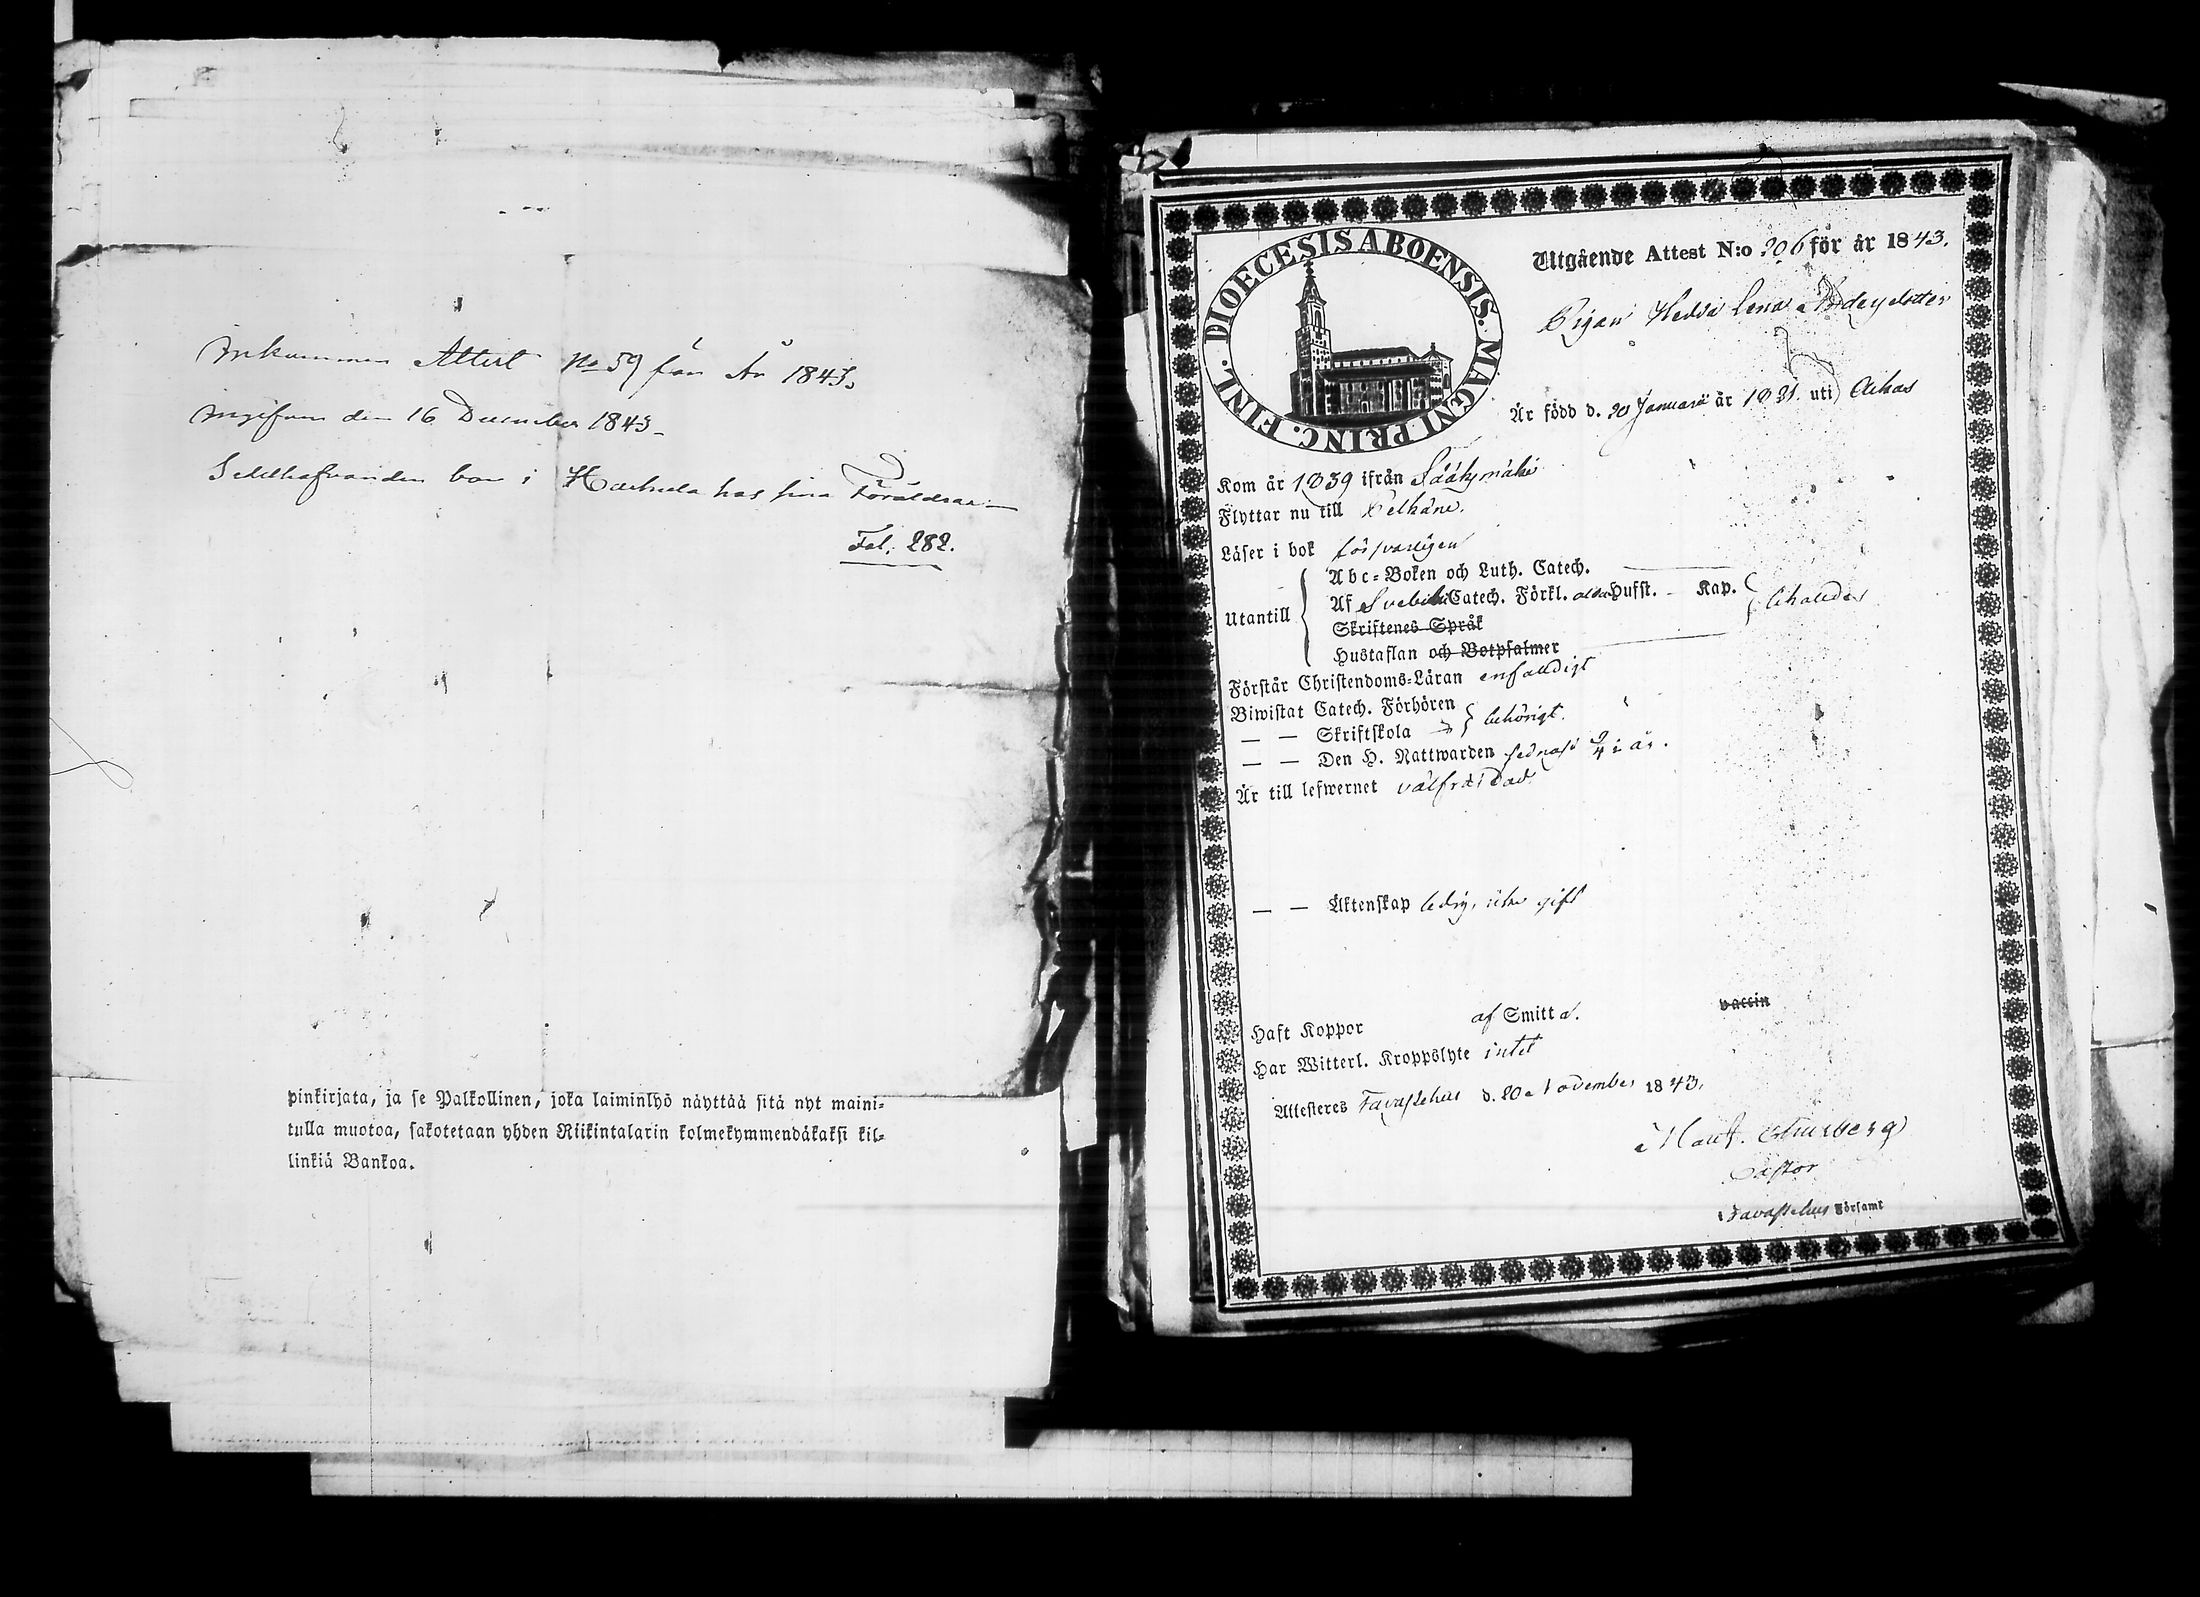 Inkommen Attest No 59 från År 1843.
Ingifven den 16 December 1843.
Sedelhafvanden bor i Haehuela hos sina Föräldrar
Fol. 282.
pinkirjata, ja se Palkollinen, joka laiminlyö näyttää sitä nyt maini-
tulla muotoa, sakotetaan yhden Riikintalarin kolmekymmendäkaksi kil-
linkiä Bankoa.
DIOECESIS ABOENSIS. MAGNI PRINC. FINL.
Utgående Attest N:o 206 för år 1843.
Pigan Hedda Lena Andersdotter
Är född d. 20 Januarii år 1821 uti Akas
Kom år 1839 ifrån Sääksmäki
Flyttar nu till Pelkäne.
Läser i bok försvarligen
Utantill
Abc-Boken och Luth. Catech.
Af Svebilii Catech. Förkl. Hufst. - Kap.
Skriftenes Språk
Hustaflan och Botpsalmer
Förstår Christendoms-Läran enfaldigt
Biwistat Catech. Förhören
— — Skriftskola behörigt.
— — Den H. Nattwarden sednast 9/4 i år.
Är till lefwernet välfräjdad
— — Äktenskap ledig, icke gift
Haft Koppor af Smitta. vaccin
Har Witterl. Kroppslyte intet
Attesteres Tavastehus d. 20 November 1843.
Pastor
i Tavastehus Församl